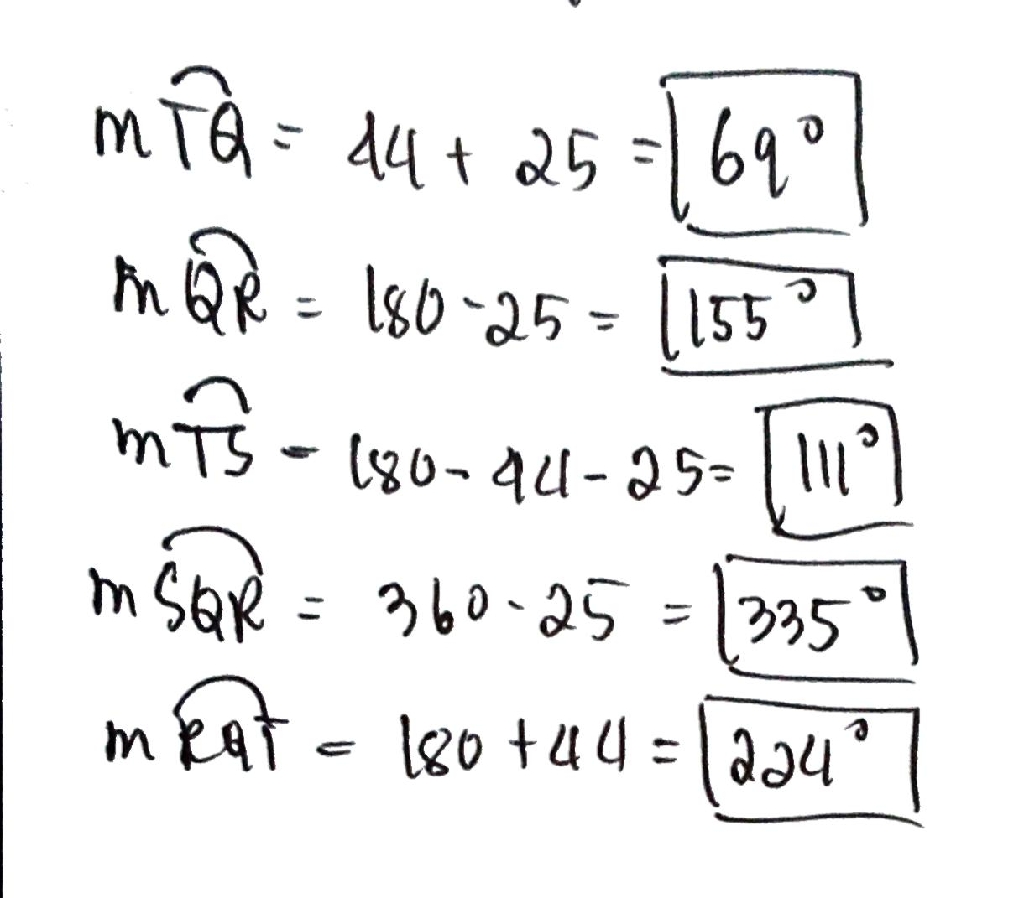 m TQ = 44 + 25 = 69°
m QR = 180 - 25 = 155°
m TS = 180 - 44 - 25 = 111°
m SQR = 360 - 25 = 335°
m RQT = 180 + 44 = 224°